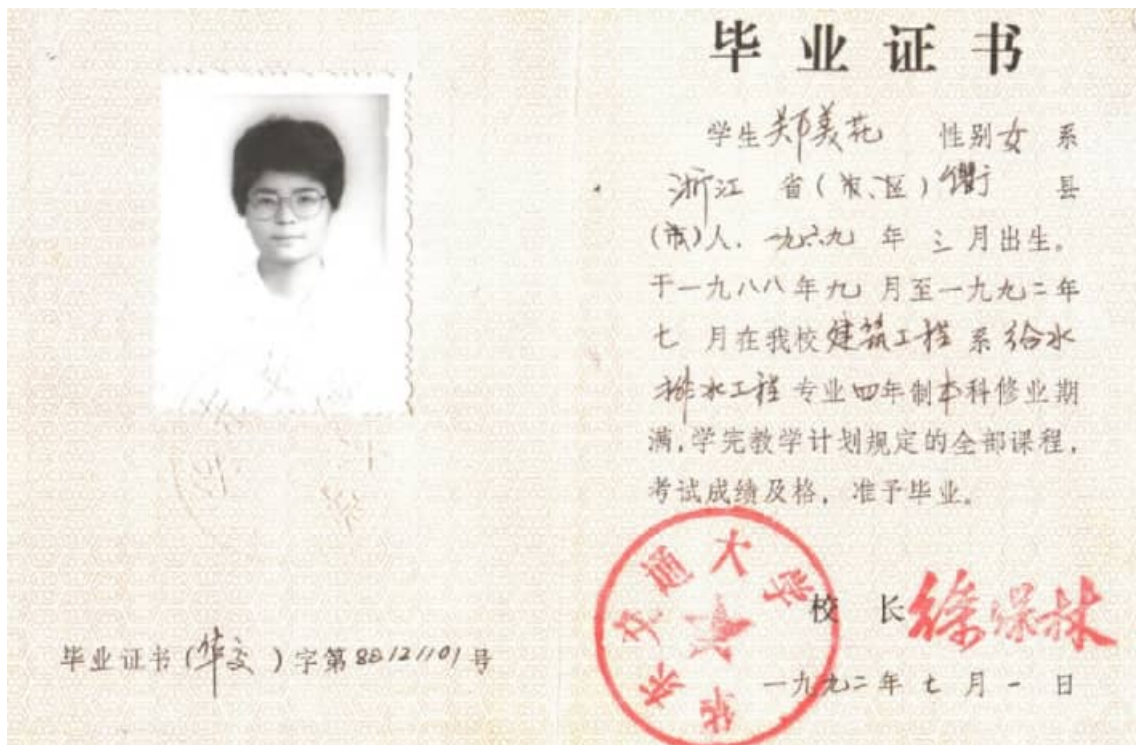 毕业证书
学生郑美花 性别女 系
浙江 省(市、区)衢 县
(市)人,一九六九 年 三 月出生。
于一九八八年九 月至一九九二年
七 月在我校建筑工程 系给水
排水工程 专业四年制本科修业期
满,学完教学计划规定的全部课程,
考试成绩及格,准予毕业。
华东交通大学
校 长 徐保林
一九九二年 七 月 一 日
毕业证书(华交 )字第88121101号